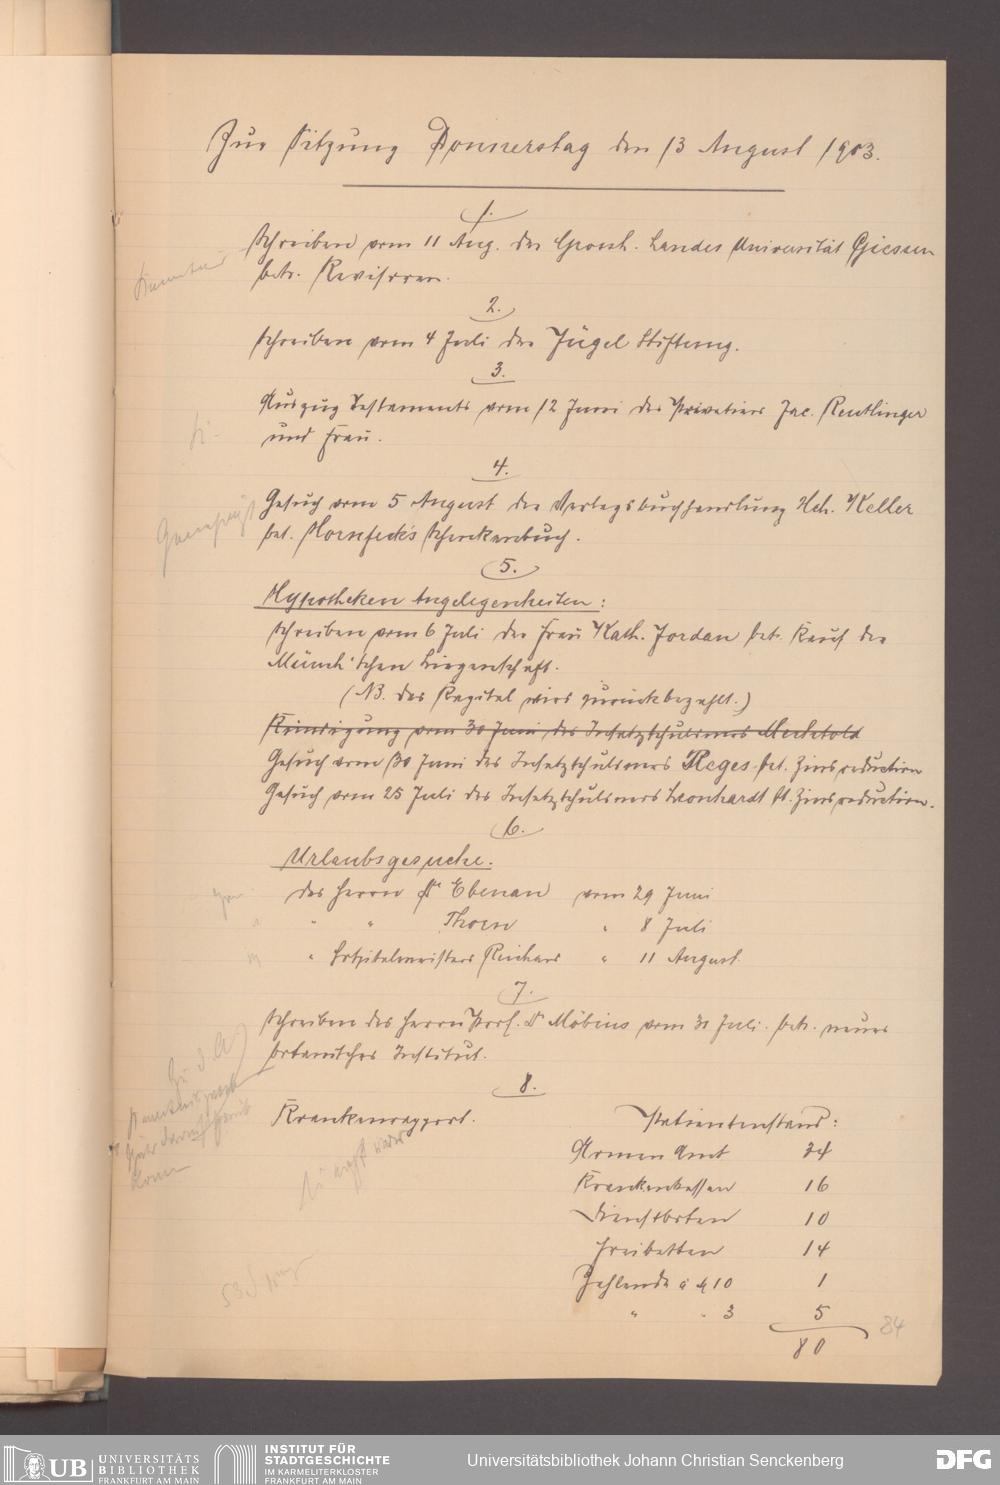 Zur Sitzung Donnerstag den 13 August 1903.
1.
Schreiben vom 11 Aug. der Grossh. Landes Universität Giessen
betr. Revisoren.
2.
Schreiben vom 4 Juli der Jügel Stiftung.
3.
Auszug Testaments vom 12 Juni des Privatiers Jac. Reutlinger
und Frau.
4.
Gesuch vom 5 August der Verlagsbuchhandlung Hch. Keller
bet. Hornfeck's Schenkenbuch.
5.
Hypotheken Angelegenheiten:
Schreiben vom 6 Juli der Frau Kath. Jordan betr. Kauf der
Münch'schen Liegenschaft.
(NB. das Kapital wird zurückbezahlt.)
Kündigung vom 30 Juni des Insatzschuldners
Gesuch vom 30 Juni des Insatzschuldners Reges bet. Zinsreduction
Gesuch vom 25 Juli des Insatzschuldners Leonhardt bt. Zinsreduction.
6.
Urlaubsgesuche.
des Herrn Dr Ebenau vom 29 Juni
" " Thorn " 8 Juli
" Hospitalmeisters Reichard " 11 August.
7.
Schreiben des Herrn Prof. Dr Möbius vom 31 Juli betr. neues
botanisches Institut.
8.
Krankenrapport. Patientenstand:
Armen Amt 34
Krankenkassen 16
Dienstboten 10
Freibetten 14
Zahlende à M 10 1
" " 3 5
80 84
UB UNIVERSITÄTS
BIBLIOTHEK
FRANKFURT AM MAIN
INSTITUT FÜR
STADTGESCHICHTE
IM KARMELITERKLOSTER
FRANKFURT AM MAIN
Universitätsbibliothek Johann Christian Senckenberg
DFG